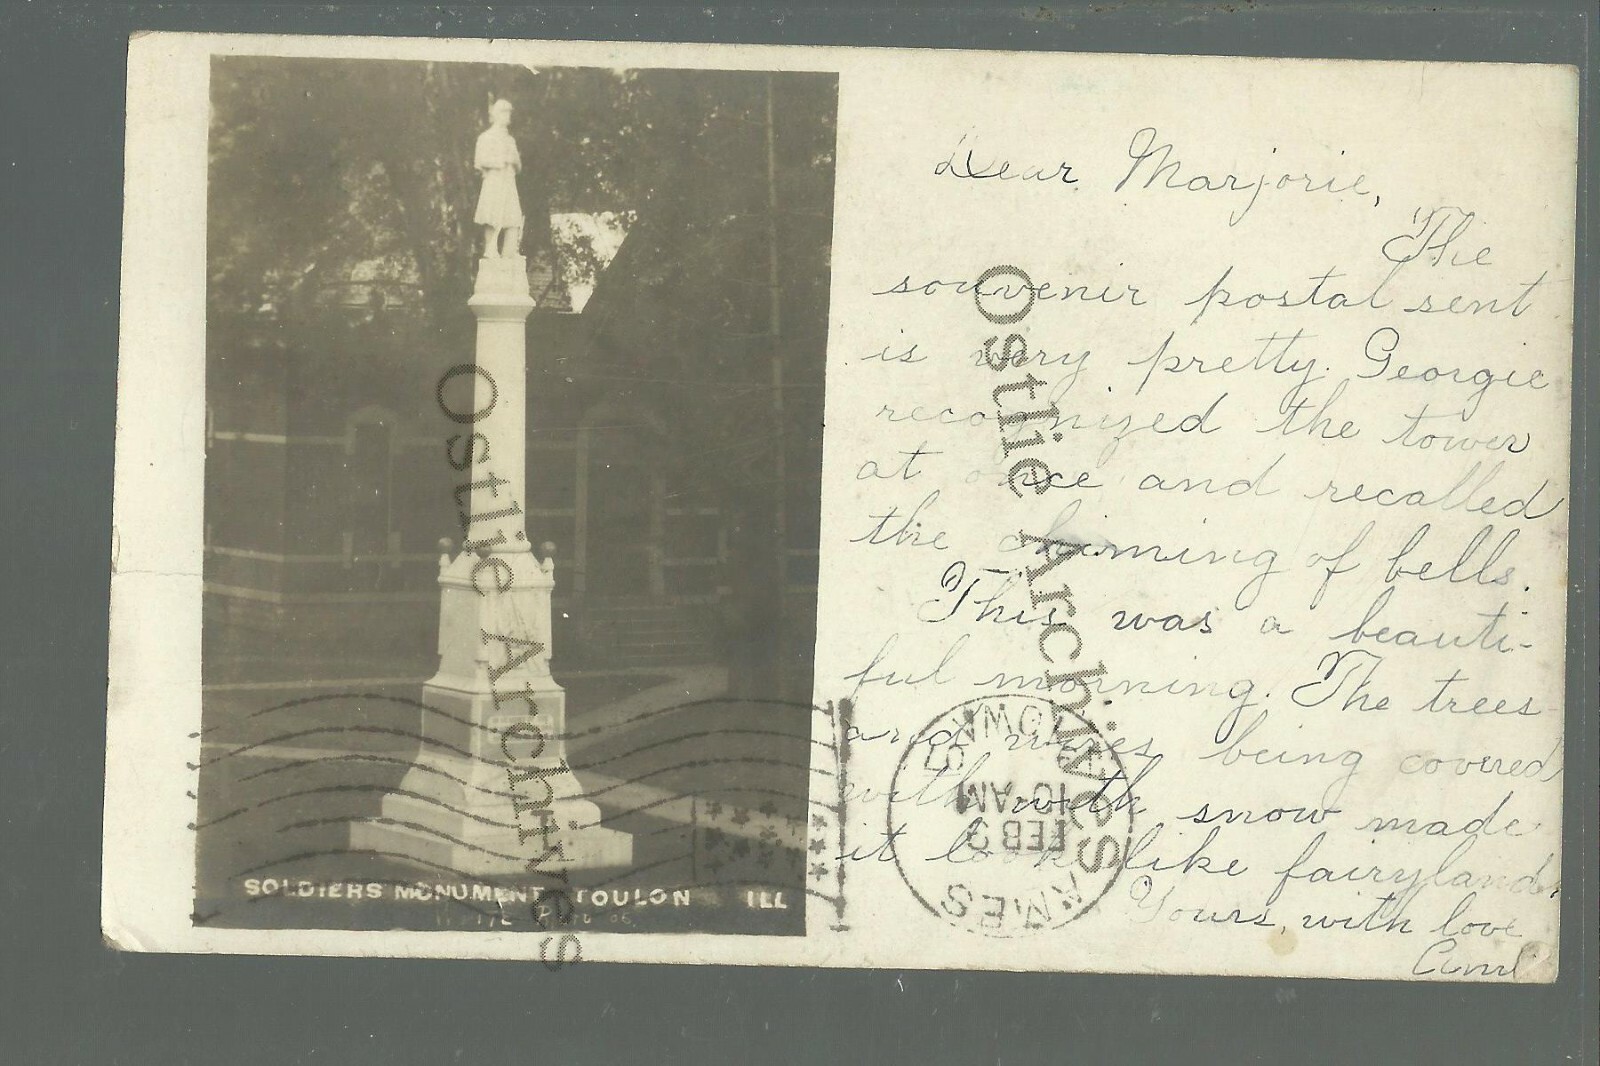 Dear Marjorie,
The
souvenir postal sent
is very pretty. Georgie
recognized the tower
at once and recalled
the chiming of bells.
This was a beauti-
ful morning. The trees
and wires being covered
with with snow made
it look like fairyland.
Yours, with love
SOLDIERS MONUMENT TOULON ILL
AMES IOWA
FEB 3
10-AM
Ostlie Archives
Ostlie Archives